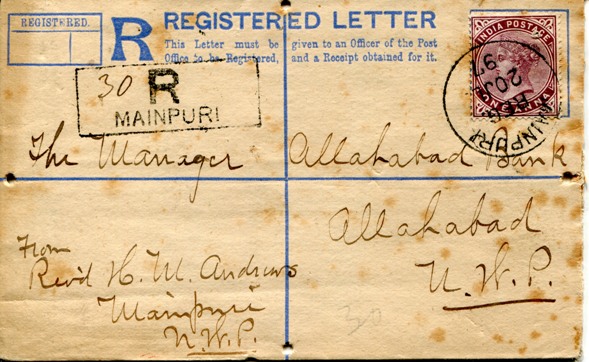 REGISTERED.
R REGISTERED LETTER
This Letter must be given to an Officer of the Post
Office to be Registered, and a Receipt obtained for it.
INDIA POSTAGE
ONE ANNA
MAINPURI
REG
20
97
30 R
MAINPURI
The Manager Allahabad Bank
Allahabad
N.W.P.
From
Revd H. M. Andrews
Mainpuri
N.W.P.
30